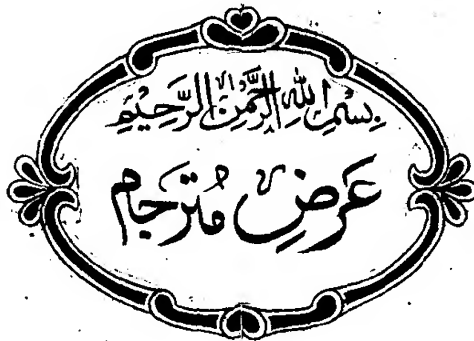 بِسْمِ اللهِ الرَّحْمٰنِ الرَّحِيْمِ
عَرَضِ مُترجَام